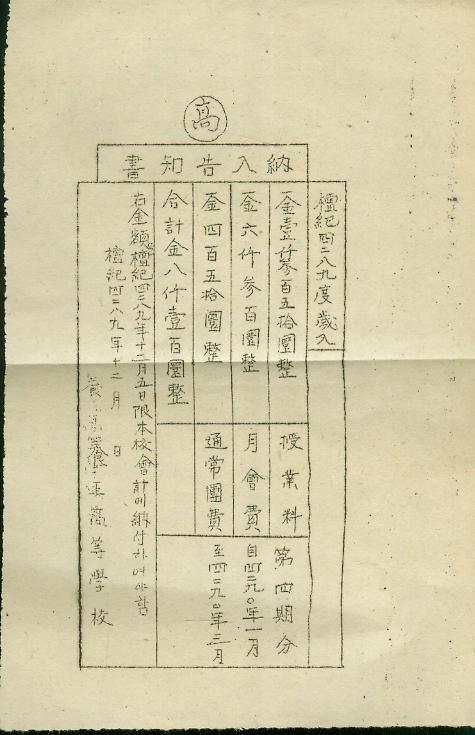 高
納入告知書
檀紀四二八九度歲入
金壹仟參百五拾圜整 授業料 第四期分
金六仟參百圜整 月會費 自四二九〇年一月
金四百五拾圜整 通常團費 至四二九〇年三月
合計金八仟壹百圜整
右金額檀紀四二八九年十二月五日限本校會計에納付하여야함
檀紀四二八九年十二月 日
高等學校